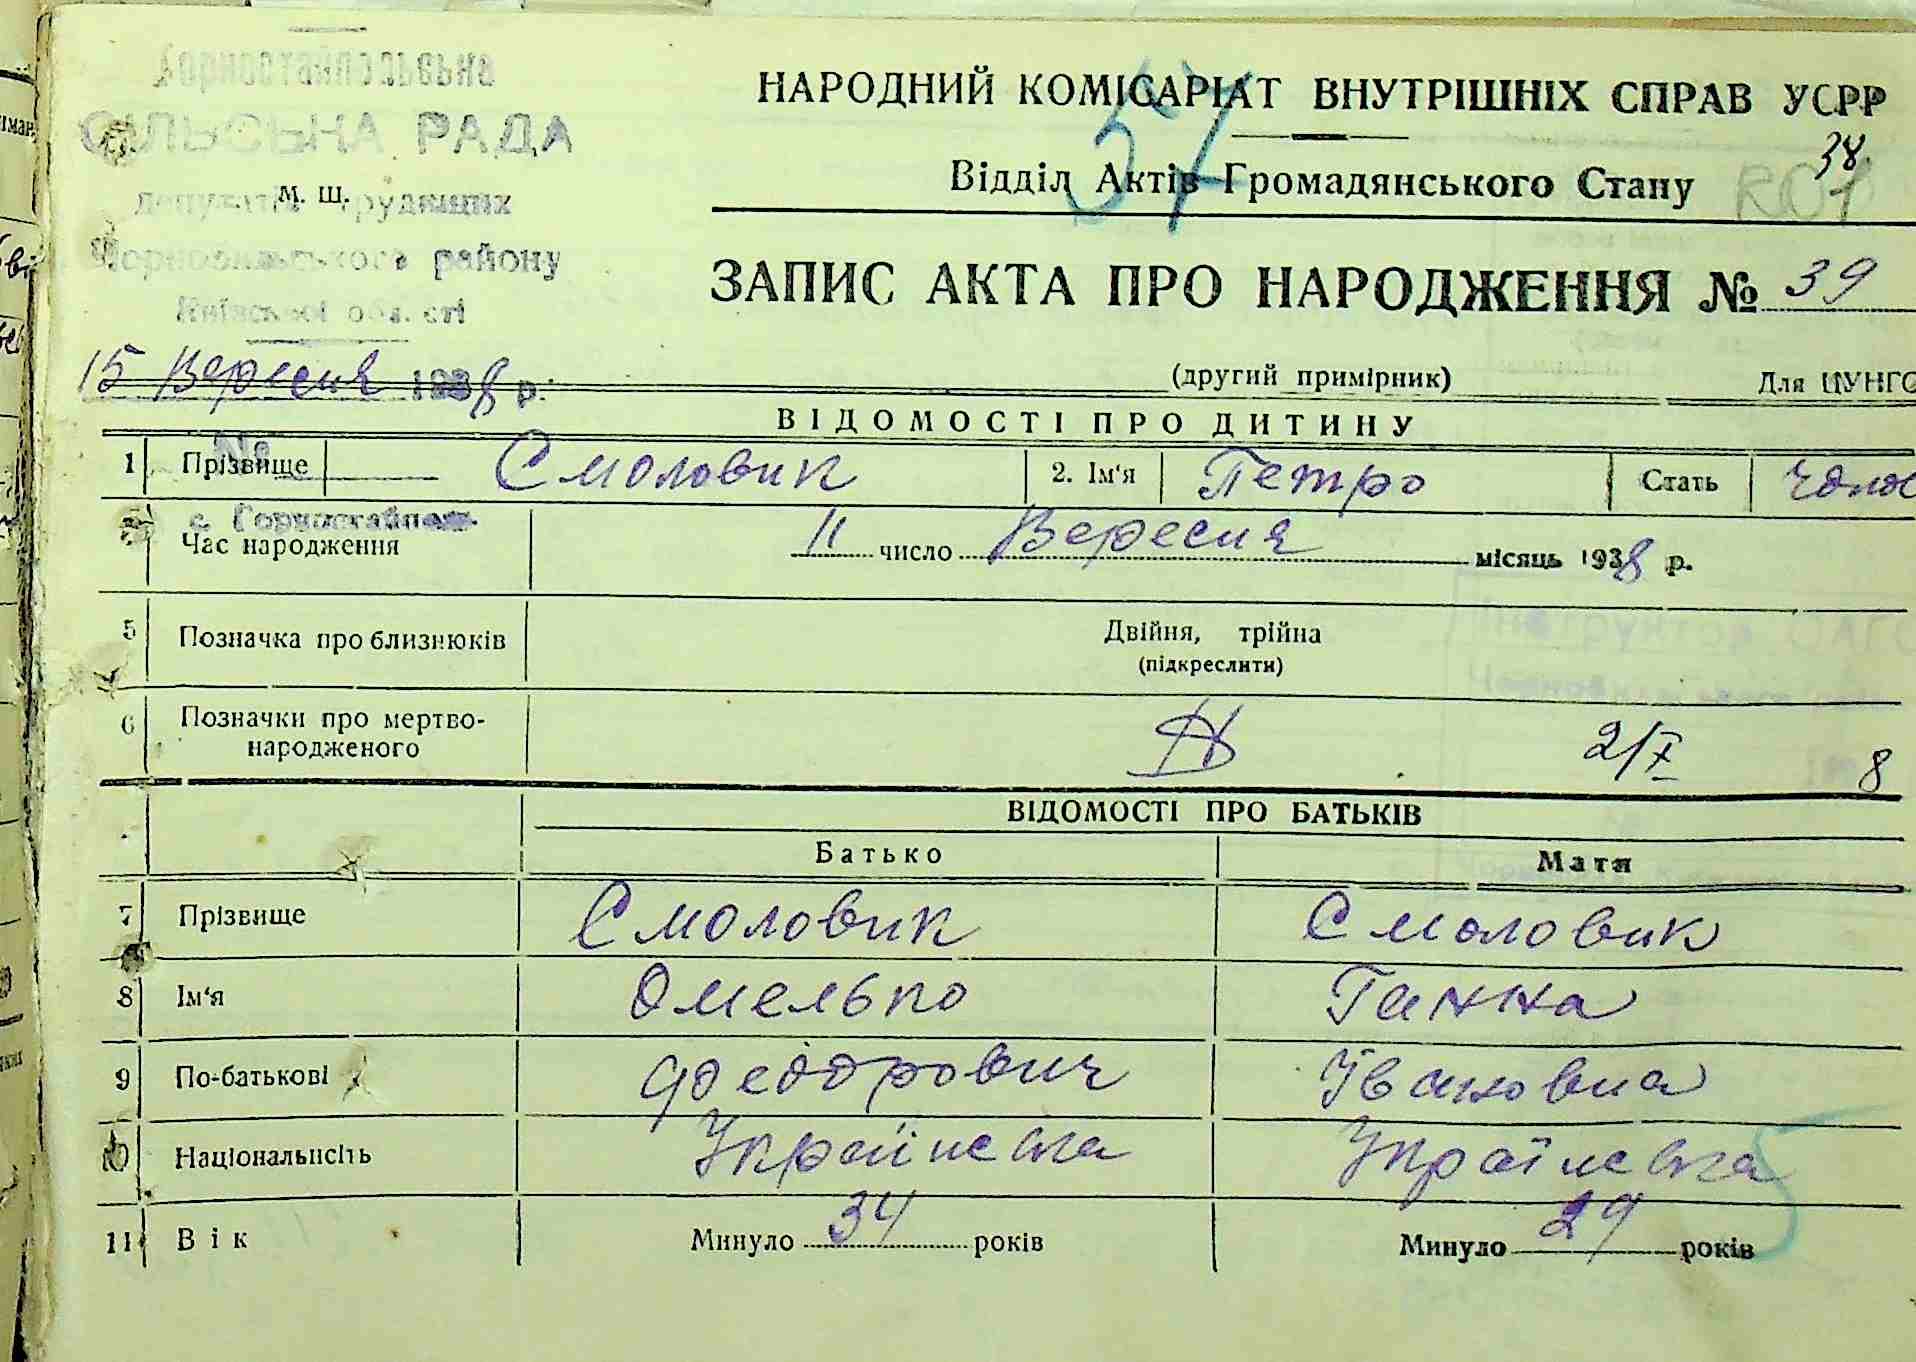 Горностайпольська
СІЛЬСЬКА РАДА
М. Ш.
депутатів трудящих
Чорнобильського району
Київської області
15 Вересня 1938 р.
№
с. Горностайполь
НАРОДНИЙ КОМІСАРІАТ ВНУТРІШНІХ СПРАВ УСРР
57
38
Відділ Актів Громадянського Стану
ЗАПИС АКТА ПРО НАРОДЖЕННЯ № 39
(другий примірник) Для ЦУНГО
ВІДОМОСТІ ПРО ДИТИНУ
1 Прізвище Смоловик 2. Ім'я Петро Стать Чолов
Час народження 11 число Вересня місяць 1938 р.
5 Позначка про близнюків Двійня, трійна
(підкреслити)
6 Позначки про мертво-
народженого 2/X 8
ВІДОМОСТІ ПРО БАТЬКІВ
Батько Мати
7 Прізвище Смоловик Смоловик
8 Ім'я Омелько Ганна
9 По-батькові Феодорович Івановна
10 Національність Українська Українська
5
11 Вік Минуло 34 років Минуло 29 років